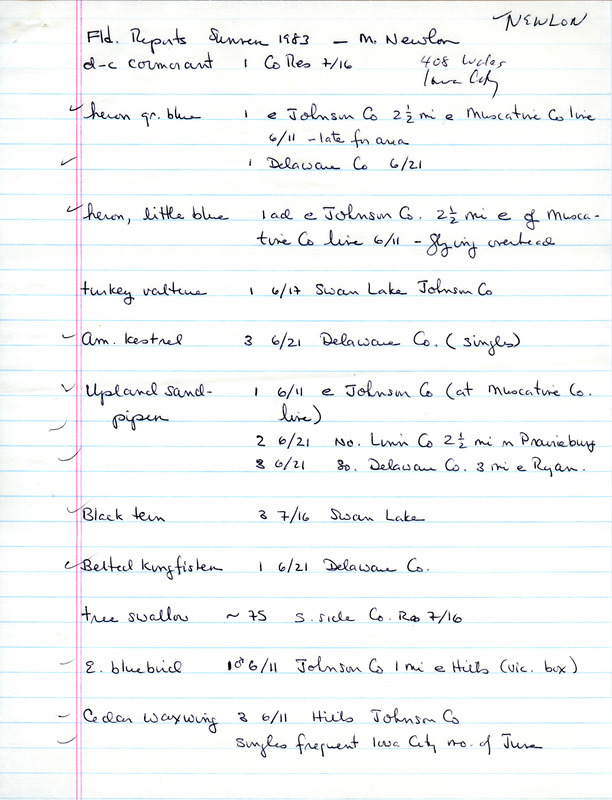 NEWLON
Fld. Reports Summer 1983 — M. Newlon
d-c cormorant 1 Co Res 7/16
408 Wales
Iowa City
✓ heron gr. blue 1 e Johnson Co 2½ mi e Muscatine Co line
6/11 - late for area
✓ 1 Delaware Co 6/21
✓ heron, little blue 1 ad e Johnson Co. 2½ mi e of Musca-
tine Co line 6/11 - flying overhead
turkey vulture 1 6/17 Swan Lake Johnson Co
✓ Am. kestrel 3 6/21 Delaware Co. (singles)
✓ Upland Sand- 1 6/11 e Johnson Co (at Muscatine Co.
piper line)
✓ 2 6/21 No. Linn Co 2½ mi n Prairieburg
✓ 3 6/21 So. Delaware Co. 3 mi e Ryan.
✓ Black tern 3 7/16 Swan Lake
✓ Belted kingfisher 1 6/21 Delaware Co.
tree swallow ~ 75 S. side Co. Res 7/16
✓ E. bluebird 1♂ 6/11 Johnson Co 1 mi e Hills (vic. box)
✓ Cedar waxwing 3 6/11 Hills Johnson Co
✓ singles frequent Iowa City mo. of June